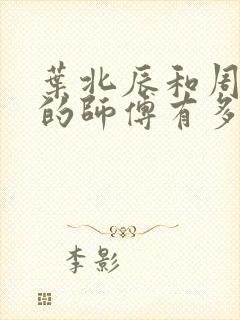 葉北辰和周
的師傅有多
李影